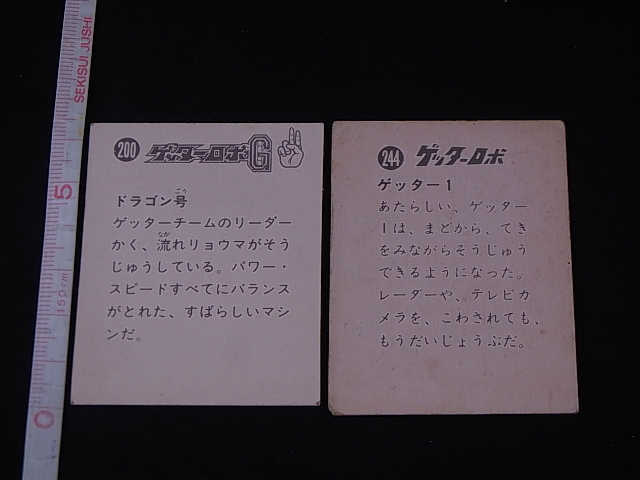 SEKISUI JUSHI
5
150cm
0
200 ゲッターロボG
ドラゴン号
ごう
ゲッターチームのリーダー
かく、流れリョウマがそう
なが
じゅうしている。パワー・
スピードすべてにバランス
がとれた、すばらしいマシ
ンだ。
244 ゲッターロボ
ゲッター1
あたらしい、ゲッター
1は、まどから、てき
をみながらそうじゅう
できるようになった。
レーダーや、テレビカ
メラを、こわされても、
もうだいじょうぶだ。